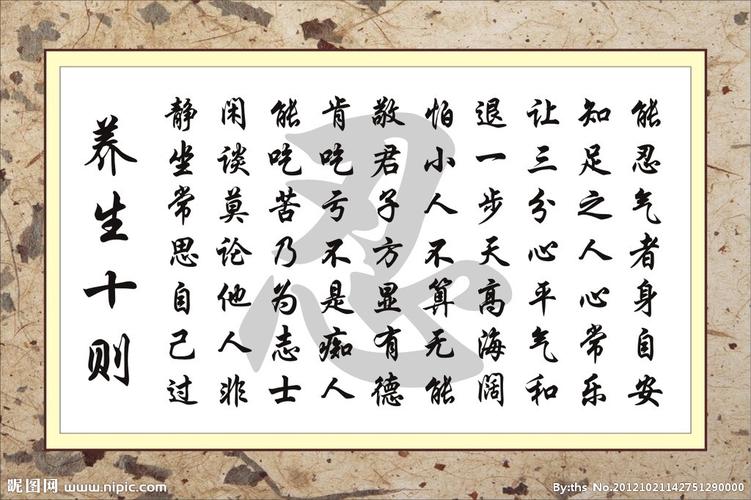 能忍气者身自安
知足之人心常乐
让三分心平气和
退一步天高海阔
怕小人不算无能
敬君子方显有德
肯吃亏不是痴人
能吃苦乃为志士
闲谈莫论他人非
静坐常思自己过
养生十则
忍
昵图网 www.nipic.com
By:ths No.20121021142751290000